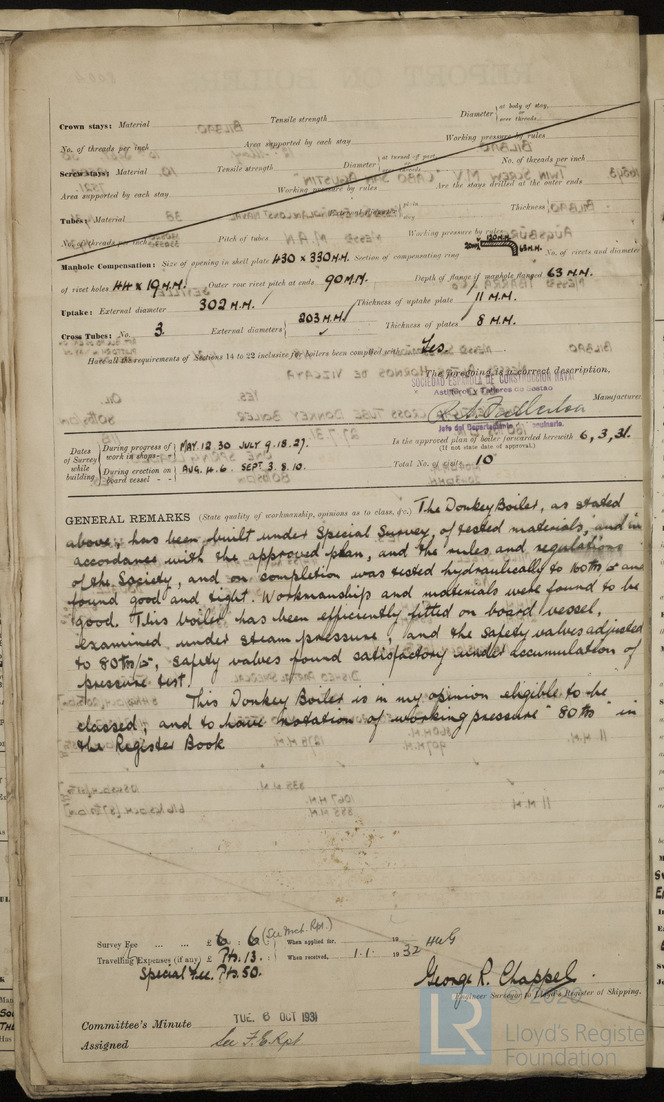 Crown stays: Material Tensile strength Diameter at body of stay, or over threads.
No. of threads per inch Area supported by each stay Working pressure by rules
Screw stays: Material Tensile strength Diameter at turned off part, or over threads No. of threads per inch
Area supported by each stay Working pressure by rules Are the stays drilled at the outer ends
Tubes: Material External diameter Thickness
No. of threads per inch Pitch of tubes Working pressure by rules
Manhole Compensation: Size of opening in shell plate 430 x 330 M.M. Section of compensating ring No. of rivets and diameter
of rivet holes 44 x 19 M.M. Outer row rivet pitch at ends 90 M.M. Depth of flange if manhole flanged 63 M.M.
Uptake: External diameter 302 M.M. Thickness of uptake plate 11 M.M.
Cross Tubes: No. 3. External diameters 203 M.M. Thickness of plates 8 M.M.
Have all the requirements of Sections 14 to 22 inclusive for boilers been complied with Yes
The foregoing is a correct description,
SOCIEDAD ESPAÑOLA DE CONSTRUCCION NAVAL
Astilleros y Talleres de Sestao
Manufacturer
Jefe del Departamento
Dates of Survey while building
During progress of work in shops - - MAY. 12. 30 JULY 9. 18. 27.
During erection on board vessel - - - AUG. 4. 6. SEPT 3. 8. 10.
Is the approved plan of boiler forwarded herewith 6, 3, 31.
(If not state date of approval.)
Total No. of visits 10
GENERAL REMARKS (State quality of workmanship, opinions as to class, &c.) The Donkey Boiler, as stated
above, has been built under Special Survey, of tested materials, and in
accordance with the approved plan, and the rules and regulations
of the Society, and on completion was tested hydraulically to 160 lbs □" and
found good and tight. Workmanship and materials were found to be
good. This boiler has been efficiently fitted on board vessel,
examined under steam pressure, and the safety valves adjusted
to 80 lbs/□", safety valves found satisfactory under accumulation of
pressure test.
This Donkey Boiler is in my opinion eligible to be
classed, and to have notation of working pressure "80 lbs" in
the Register Book
Survey Fee ... ... £ 6 : 6 (See Mach. Rpt.) When applied for, 19
Travelling Expenses (if any) £ Pts. 13. : When received, 1.1. 19 32
Special Fee. Pts. 50.
George R. Chappel.
Engineer Surveyor to Lloyd's Register of Shipping.
Committee's Minute TUE. 6 OCT 1931
Assigned See F.E. Rpt.
© 2020
LR
Lloyd's Registe
Foundation